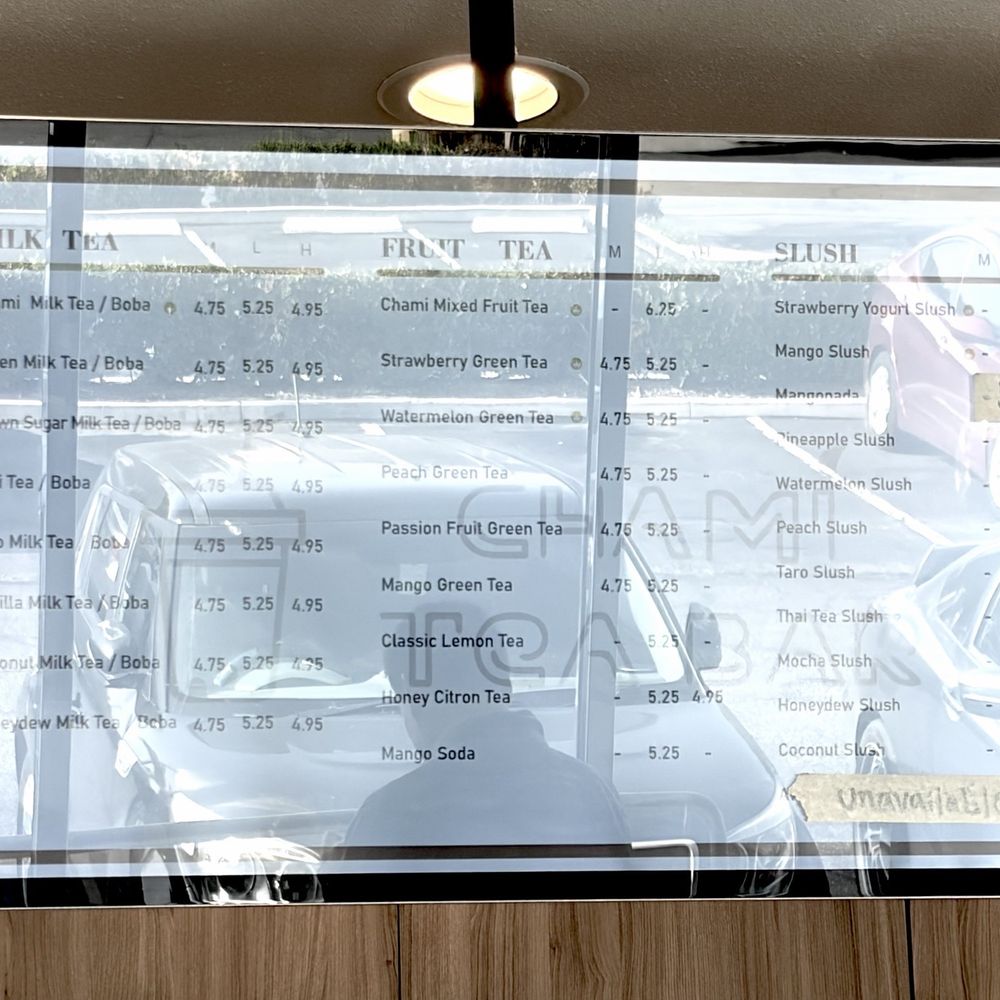 MILK TEA M L H
mi Milk Tea / Boba 4.75 5.25 4.95
en Milk Tea / Boba 4.75 5.25 4.95
wn Sugar Milk Tea / Boba 4.75 5.25 4.95
i Tea / Boba 4.75 5.25 4.95
o Milk Tea / Boba 4.75 5.25 4.95
illa Milk Tea / Boba 4.75 5.25 4.95
onut Milk Tea / Boba 4.75 5.25 4.95
eydew Milk Tea / Boba 4.75 5.25 4.95
FRUIT TEA M L H
Chami Mixed Fruit Tea - 6.25 -
Strawberry Green Tea 4.75 5.25 -
Watermelon Green Tea 4.75 5.25 -
Peach Green Tea 4.75 5.25 -
Passion Fruit Green Tea 4.75 5.25 -
Mango Green Tea 4.75 5.25 -
Classic Lemon Tea - 5.25 -
Honey Citron Tea - 5.25 4.95
Mango Soda - 5.25 -
SLUSH M
Strawberry Yogurt Slush -
Mango Slush -
Mangonada
Pineapple Slush -
Watermelon Slush -
Peach Slush -
Taro Slush -
Thai Tea Slush -
Mocha Slush -
Honeydew Slush -
Coconut Slush -
Unavailabl
CHAMI
TEA BAR